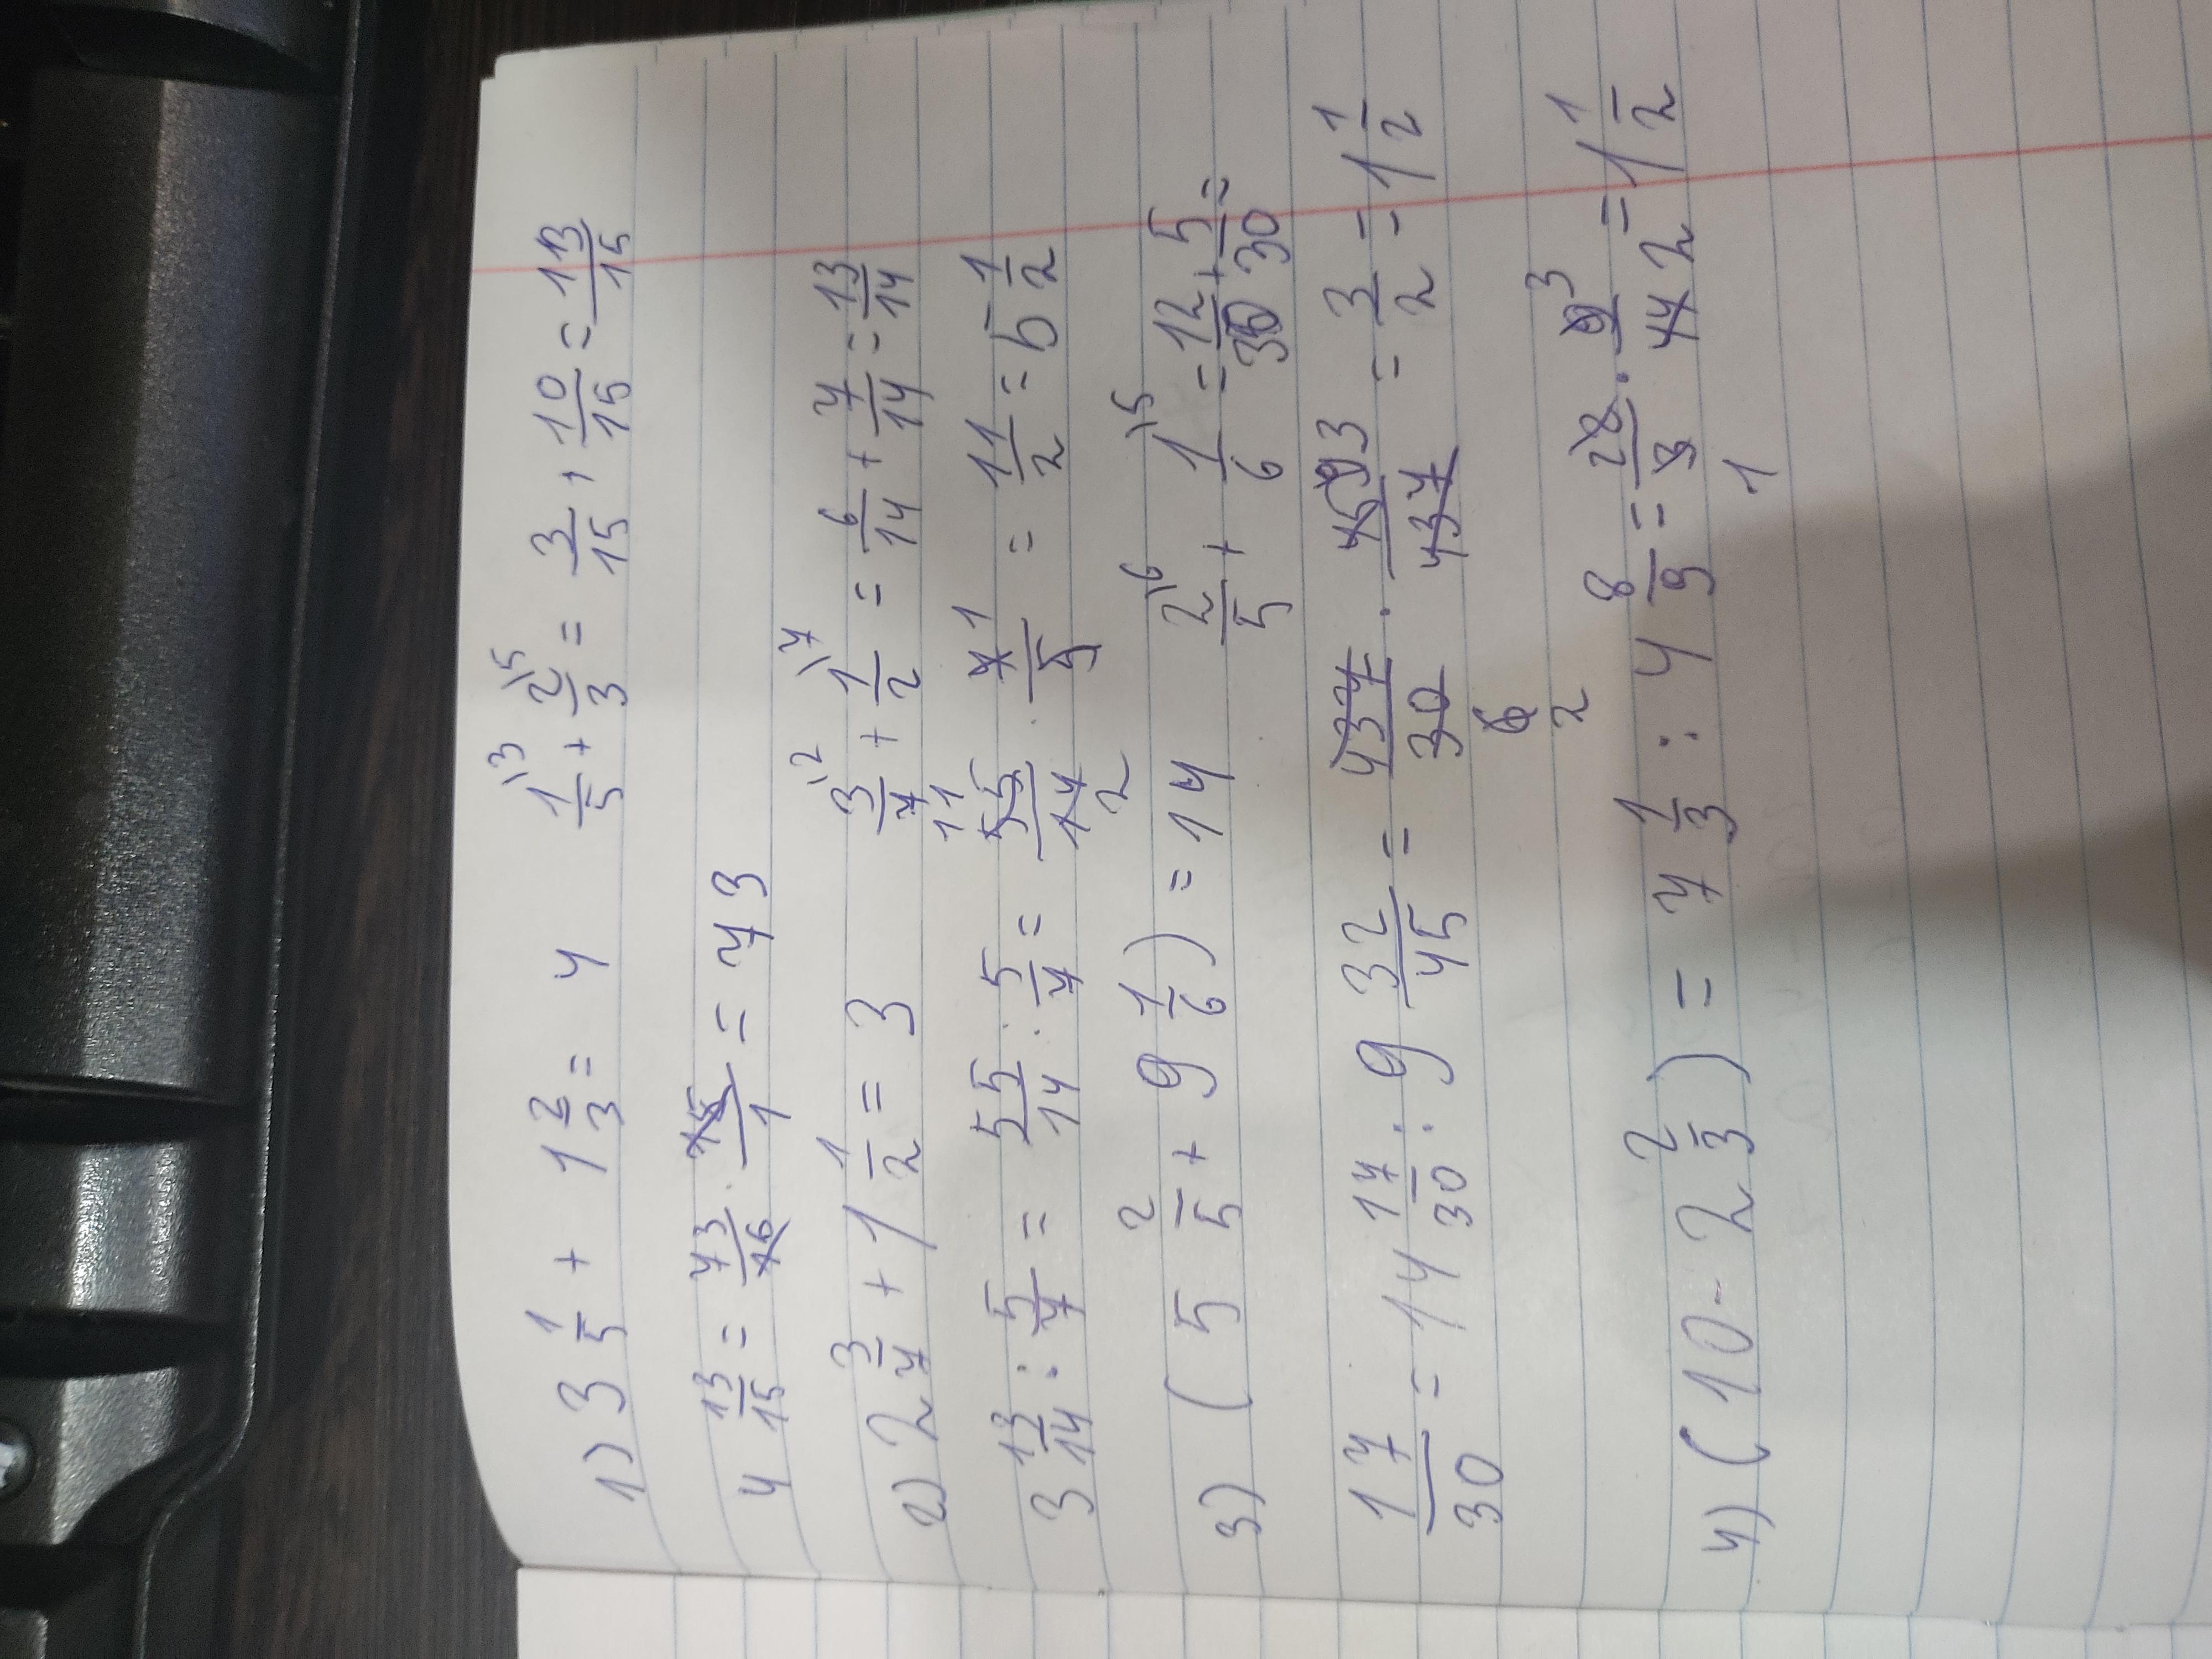 1) 3 1/5 + 1 2/3 = 4 1\3/5 + 2\5/3 = 3/15 + 10/15 = 13/15
4 13/15 = 73/16 · 15/1 = 73
2) 2 3/7 + 1 1/2 = 3 3\2/7 + 1\7/2 = 6/14 + 7/14 = 13/14
3 13/14 : 5/7 = 55/14 : 5/7 = 55 11/14 2 · 7 1/5 = 11/2 = 5 1/2
3) (5 2/5 + 9 1/6) = 14 2\6/5 + 1\5/6 = 12/30 + 5/30 =
17/30 = 14 17/30 : 9 32/45 = 437/30 6 2 · 45 9 3/437 = 3/2 = 1 1/2
4) (10 - 2 2/3) = 7 1/3 : 4 8/9 = 22/3 1 · 9 3/44 2 = 1 1/2